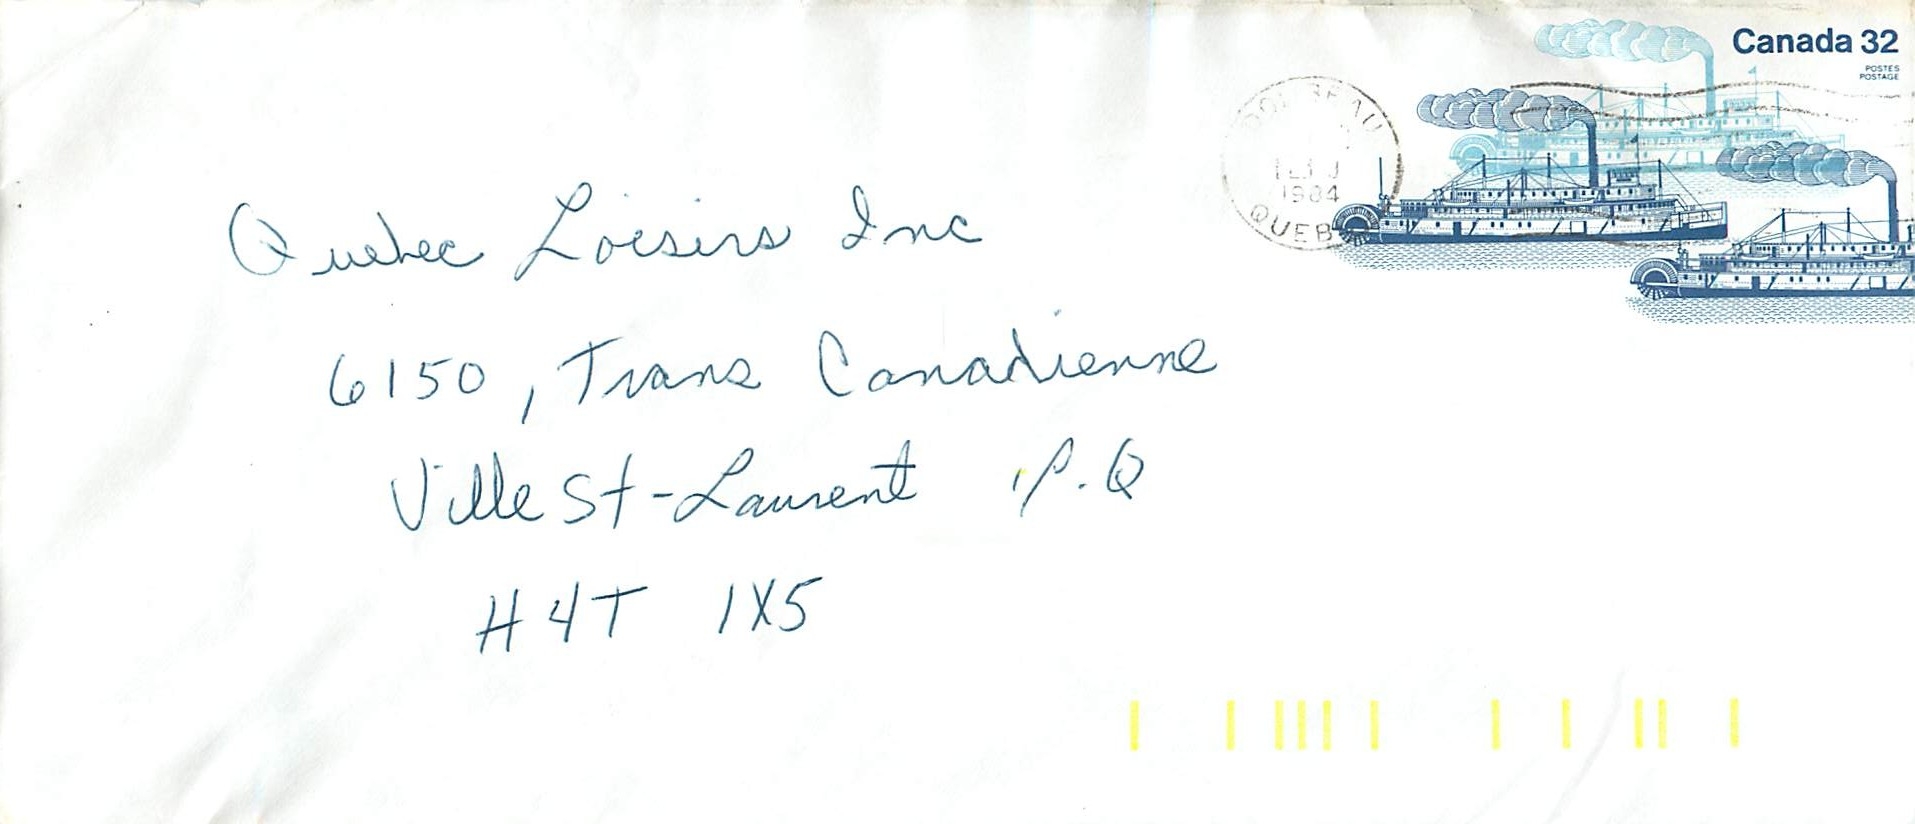 Canada 32
POSTES
POSTAGE
1984
Quebec Loisirs Inc
6150, Trans Canadienne
Ville St-Laurent P.Q
H4T 1X5